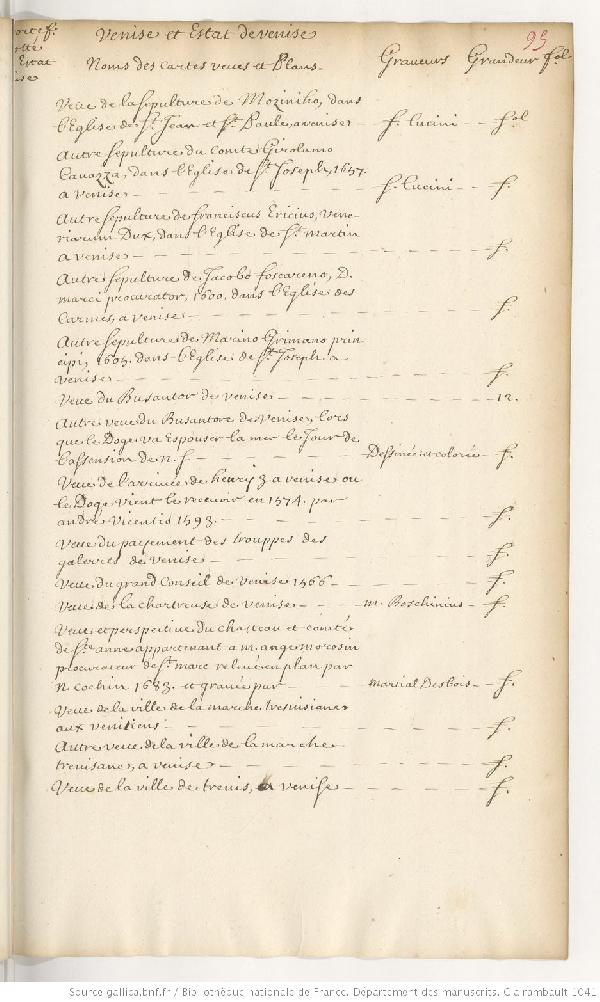 93
Venise et Estat de venise
Noms des cartes veues et Plans Graveurs Grandeur fol
Veue de la sepulture de Moziniho, dans
l'Eglise de St. Jean et St. Paul, a venise f. Lucini fol
Autre sepulture du comte Girolamo
Cavazza, dans l'Eglise de St. Joseph, 1657.
a venise f. Lucini f.
Autre sepulture de franciscus Ericius, vene-
riarum Dux, dans l'Eglise de St. Martin
a venise f.
Autre sepulture de Jacobo foscareno, D.
marci procurator, 1600. dans l'Eglise des
Carmes, a venise f.
Autre sepulture de Marino Grimano prin
cipi, 1605. dans l'Eglise de St. Joseph a
venise f.
Veue du Busantor de venise 12.
Autre veue du Busantore de Venise, lors
que le Doge va Espouser la mer le Jour de
l'assension de n. s. Dessinée et colorée f.
Veue de l'arrivée de henry 3 a venise ou
le Doge vient le recevoir en 1574. par
andré Vicentio 1593. f.
Veue du payement des trouppes des
galeres de venise f.
Veue du grand Conseil de Venise 1566 f.
Veue de la chartreuse de venise m. Boschinius f.
Veue et perspective du chasteau et comté
de Ste. anne appartenant a m. ange morosin
procureur de St. marc relevé en plan par
N. Cochin 1683. et gravé par marsial Desbois f.
Veue de la ville de la marche trevisiane
aux venitiens f.
Autre veue de la ville de la marche
trevisane, a venise f.
Veue de la ville de trevis, a venise f.
Source gallica.bnf.fr / Bibliothèque nationale de France. Département des manuscrits. Clairambault 1041